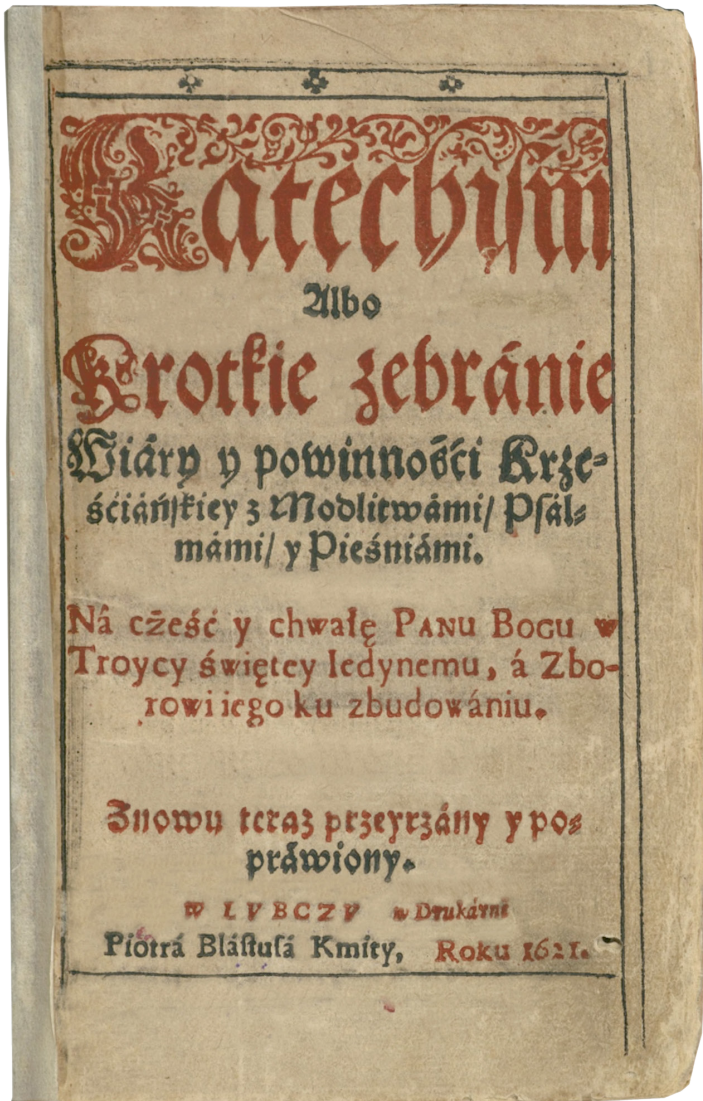 Katechiſm
Albo
Krotkie zebránie
Wiáry y powinnośći Krze⸗
śćiáńſkiey z Modlitwámi/ Pſál⸗
mámi/ y Pieśniámi.
Ná cżeść y chwałę PANU BOGU w
Troycy świętey Iedynemu, á Zbo-
rowi iego ku zbudowániu.
Znowu teraz przeyrzány y po⸗
práwiony.
W LVBCZV w Drukárni
Piotrá Bláſtuſá Kmity, Roku 1621.